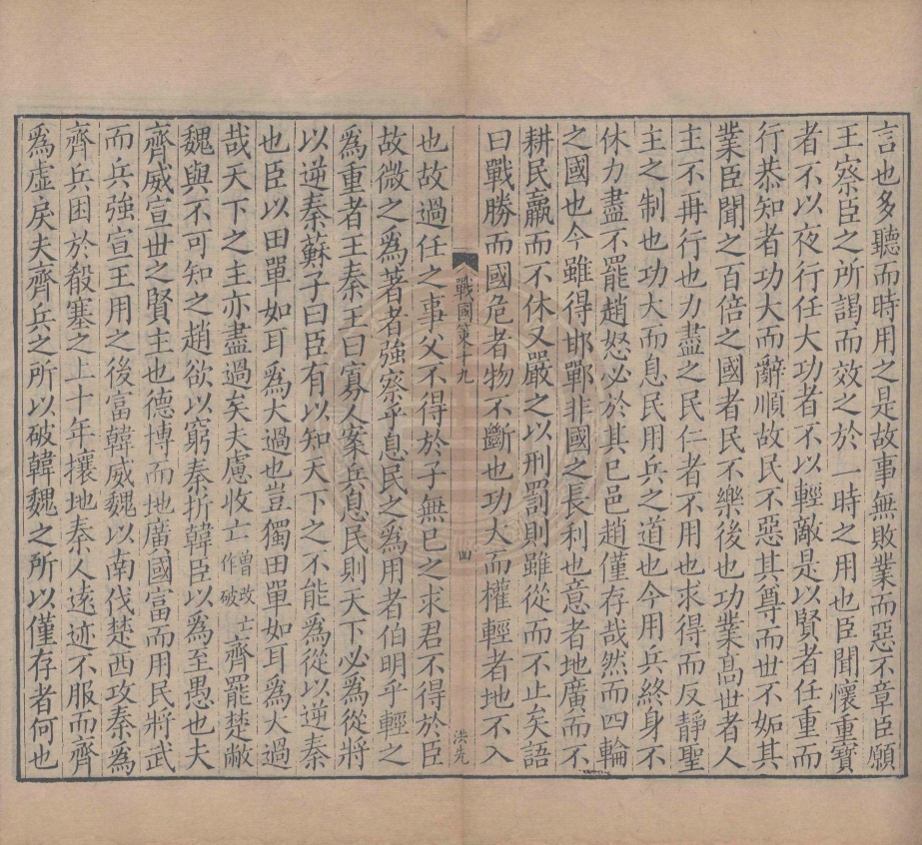 言也多聽而時用之是故事無敗業而惡不章臣願
王察臣之所謁而效之於一時之用也臣聞懷重寶
者不以夜行任大功者不以輕敵是以賢者任重而
行恭知者功大而辭順故民不惡其尊而世不妬其
業臣聞之百倍之國者民不樂後也功業高世者人
主不再行也力盡之民仁者不用也求得而反靜聖
主之制也功大而息民用兵之道也今用兵終身不
休力盡不罷趙怒必於其已邑趙僅存哉然而四輪
之國也今雖得邯鄲非國之長利也意者地廣而不
耕民羸而不休又嚴之以刑罰則雖從而不止矣語
曰戰勝而國危者物不斷也功大而權輕者地不入
戰國策十九
四
洪先
也故過任之事父不得於子無已之求君不得於臣
故微之爲著者強察乎息民之爲用者伯明乎輕之
爲重者王秦王曰寡人案兵息民則天下必爲從將
以逆秦蘇子曰臣有以知天下之不能爲從以逆秦
也臣以田單如耳爲大過也豈獨田單如耳爲大過
哉天下之主亦盡過矣夫慮收亡曾改亡作破齊罷楚敝
魏與不可知之趙欲以窮秦折韓臣以爲至愚也夫
齊威宣世之賢主也德博而地廣國富而用民將武
而兵強宣王用之後富韓威魏以南伐楚西攻秦爲
齊兵困於殽塞之上十年攘地秦人逺迹不服而齊
爲虛戾夫齊兵之所以破韓魏之所以僅存者何也